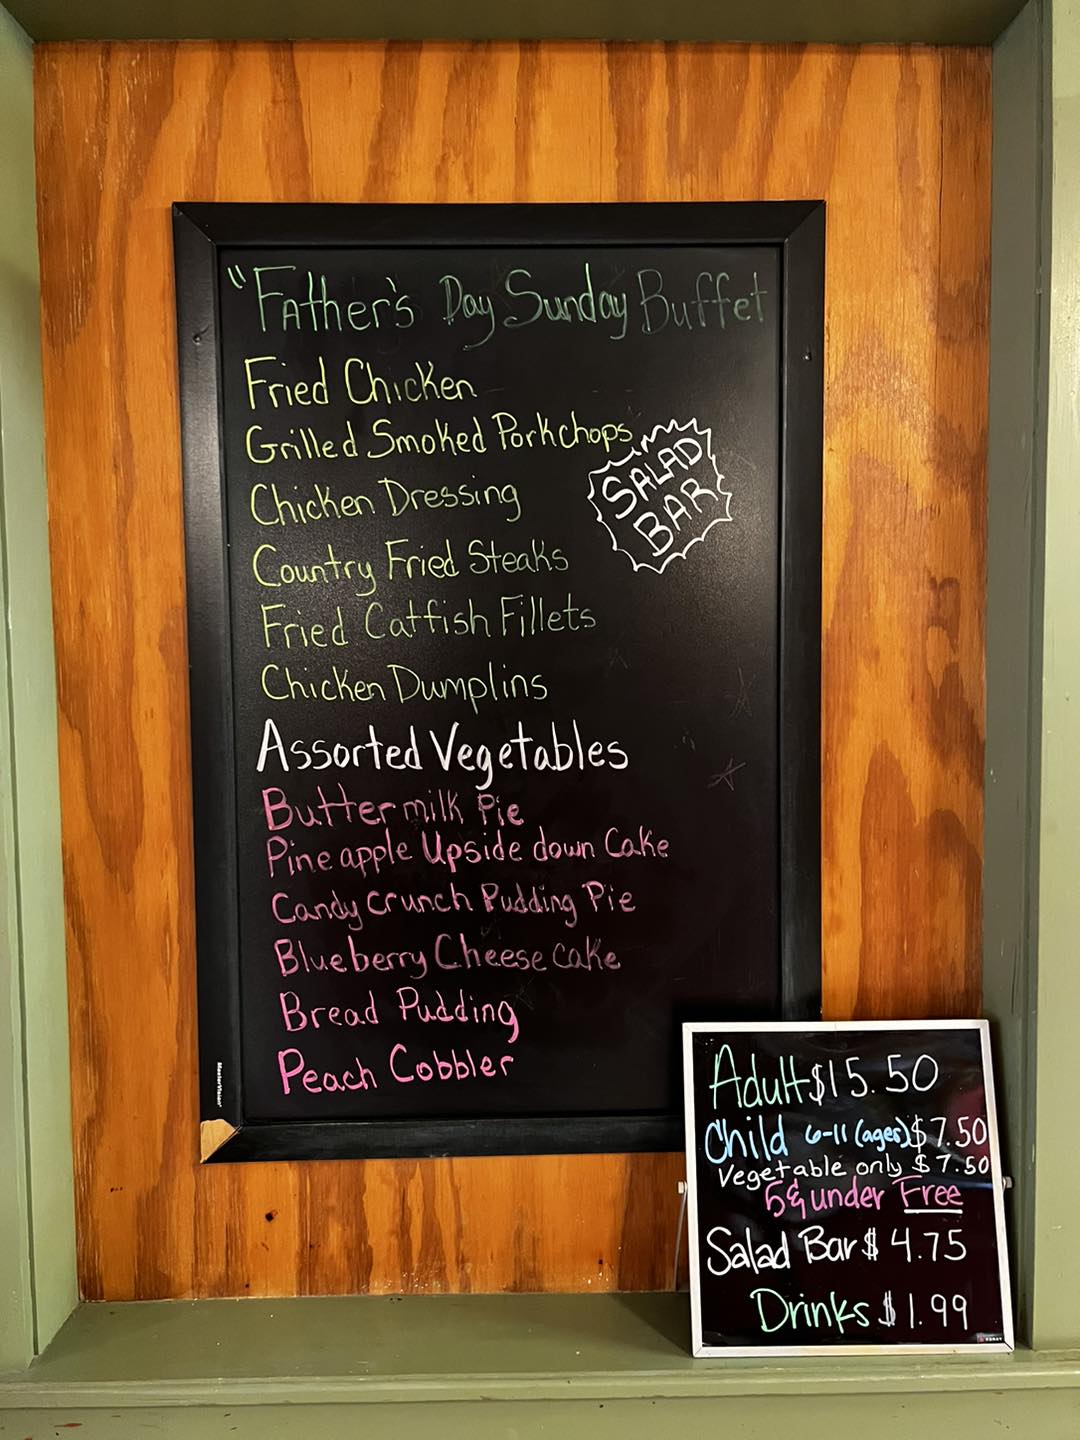 "Father's Day Sunday Buffet
Fried Chicken
Grilled Smoked Porkchops
SALAD
BAR
Chicken Dressing
Country Fried Steaks
Fried Catfish Fillets
Chicken Dumplins
Assorted Vegetables
Buttermilk Pie
Pineapple Upside down Cake
Candy crunch Pudding Pie
Blueberry Cheesecake
Bread Pudding
Peach Cobbler
MasterVision
Adult $15.50
Child 6-11 (ages) $7.50
Vegetable only $7.50
5 & under Free
Salad Bar $4.75
Drinks $1.99